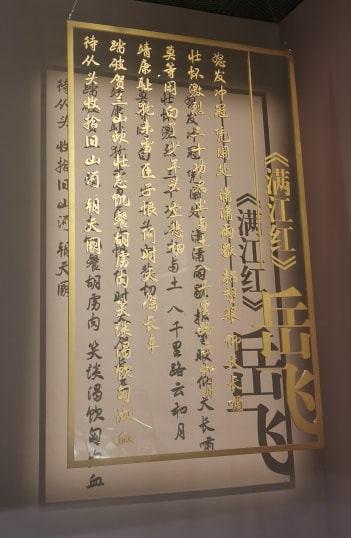 《满江红》
岳飞
怒发冲冠 凭阑处 潇潇雨歇 抬望眼 仰天长啸
壮怀激烈 三十功名尘与土 八千里路云和月
莫等闲 白了少年头 空悲切
靖康耻 犹未雪 臣子恨 何时灭 驾长车
踏破贺兰山缺 壮志饥餐胡虏肉 笑谈渴饮匈奴血
待从头 收拾旧山河 朝天阙